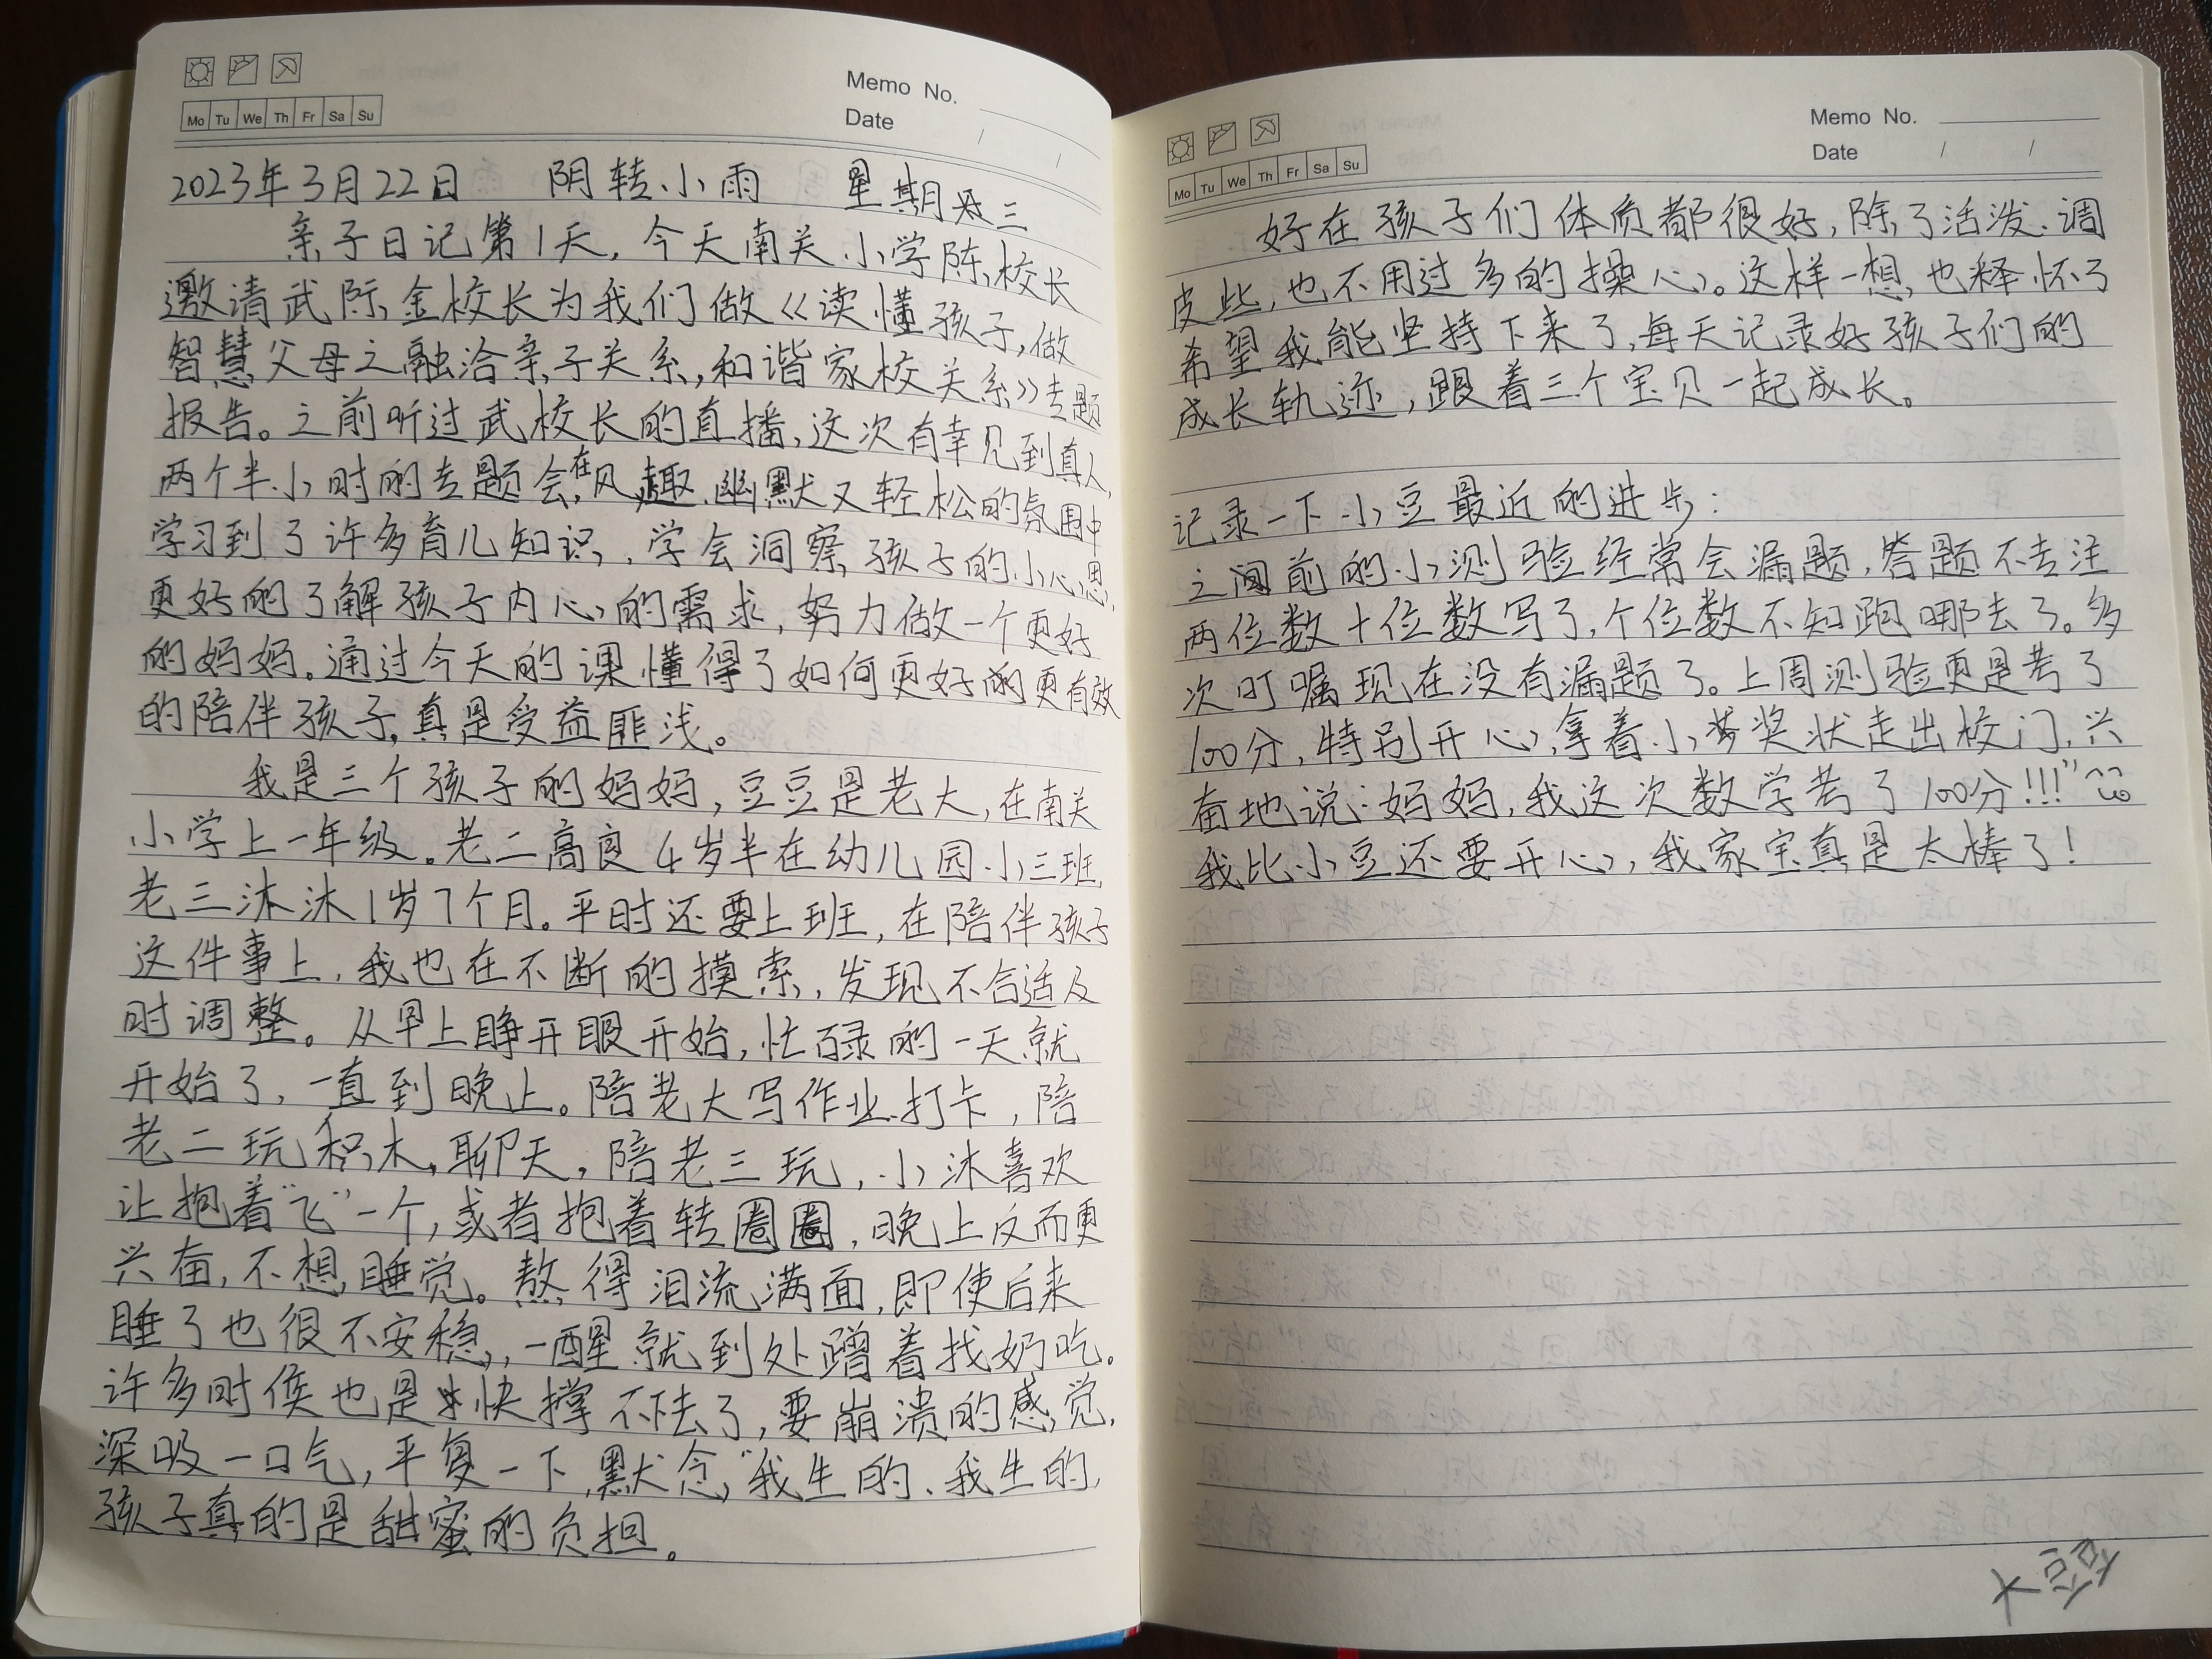 Memo No.
Mo Tu We Th Fr Sa Su
Date / /
2023年3月22日 阴转小雨 星期三
亲子日记第1天，今天南关小学陈校长
邀请武际金校长为我们做《读懂孩子，做
智慧父母之融洽亲子关系，和谐家校关系》专题
报告。之前听过武校长的直播，这次有幸见到真人，
两个半小时的专题会，在风趣、幽默又轻松的氛围中
学习到了许多育儿知识，学会洞察孩子的小心思，
更好的了解孩子内心的需求，努力做一个更好
的妈妈。通过今天的课懂得了如何更好的更有效
的陪伴孩子，真是受益匪浅。
我是三个孩子的妈妈，豆豆是老大，在南关
小学上一年级。老二高良4岁半在幼儿园小三班，
老三沐沐1岁7个月。平时还要上班，在陪伴孩子
这件事上，我也在不断的摸索，发现不合适及
时调整。从早上睁开眼开始，忙碌的一天就
开始了，一直到晚上。陪老大写作业、打卡，陪
老二玩积木，聊天，陪老三玩，小沐喜欢
让抱着“飞”一个，或者抱着转圈圈，晚上反而更
兴奋，不想睡觉。熬得泪流满面，即使后来
睡了也很不安稳，一醒就到处蹭着找奶吃。
许多时侯也是快撑不下去了，要崩溃的感觉，
深吸一口气，平复一下，默念，“我生的、我生的，
孩子真的是甜蜜的负担。
Memo No.
Mo Tu We Th Fr Sa Su
Date / /
好在孩子们体质都很好，除了活泼、调
皮些，也不用过多的操心。这样一想，也释怀了
希望我能坚持下来了，每天记录好孩子们的
成长轨迹，跟着三个宝贝一起成长。
记录一下小豆最近的进步：
之前的小测验经常会漏题，答题不专注
两位数十位数写了，个位数不知跑哪去了。多
次叮嘱现在没有漏题了。上周测验更是考了
100分，特别开心，拿着小奖状走出校门，兴
奋地说：妈妈，我这次数学考了100分!!!”
我比小豆还要开心，我家宝真是太棒了！